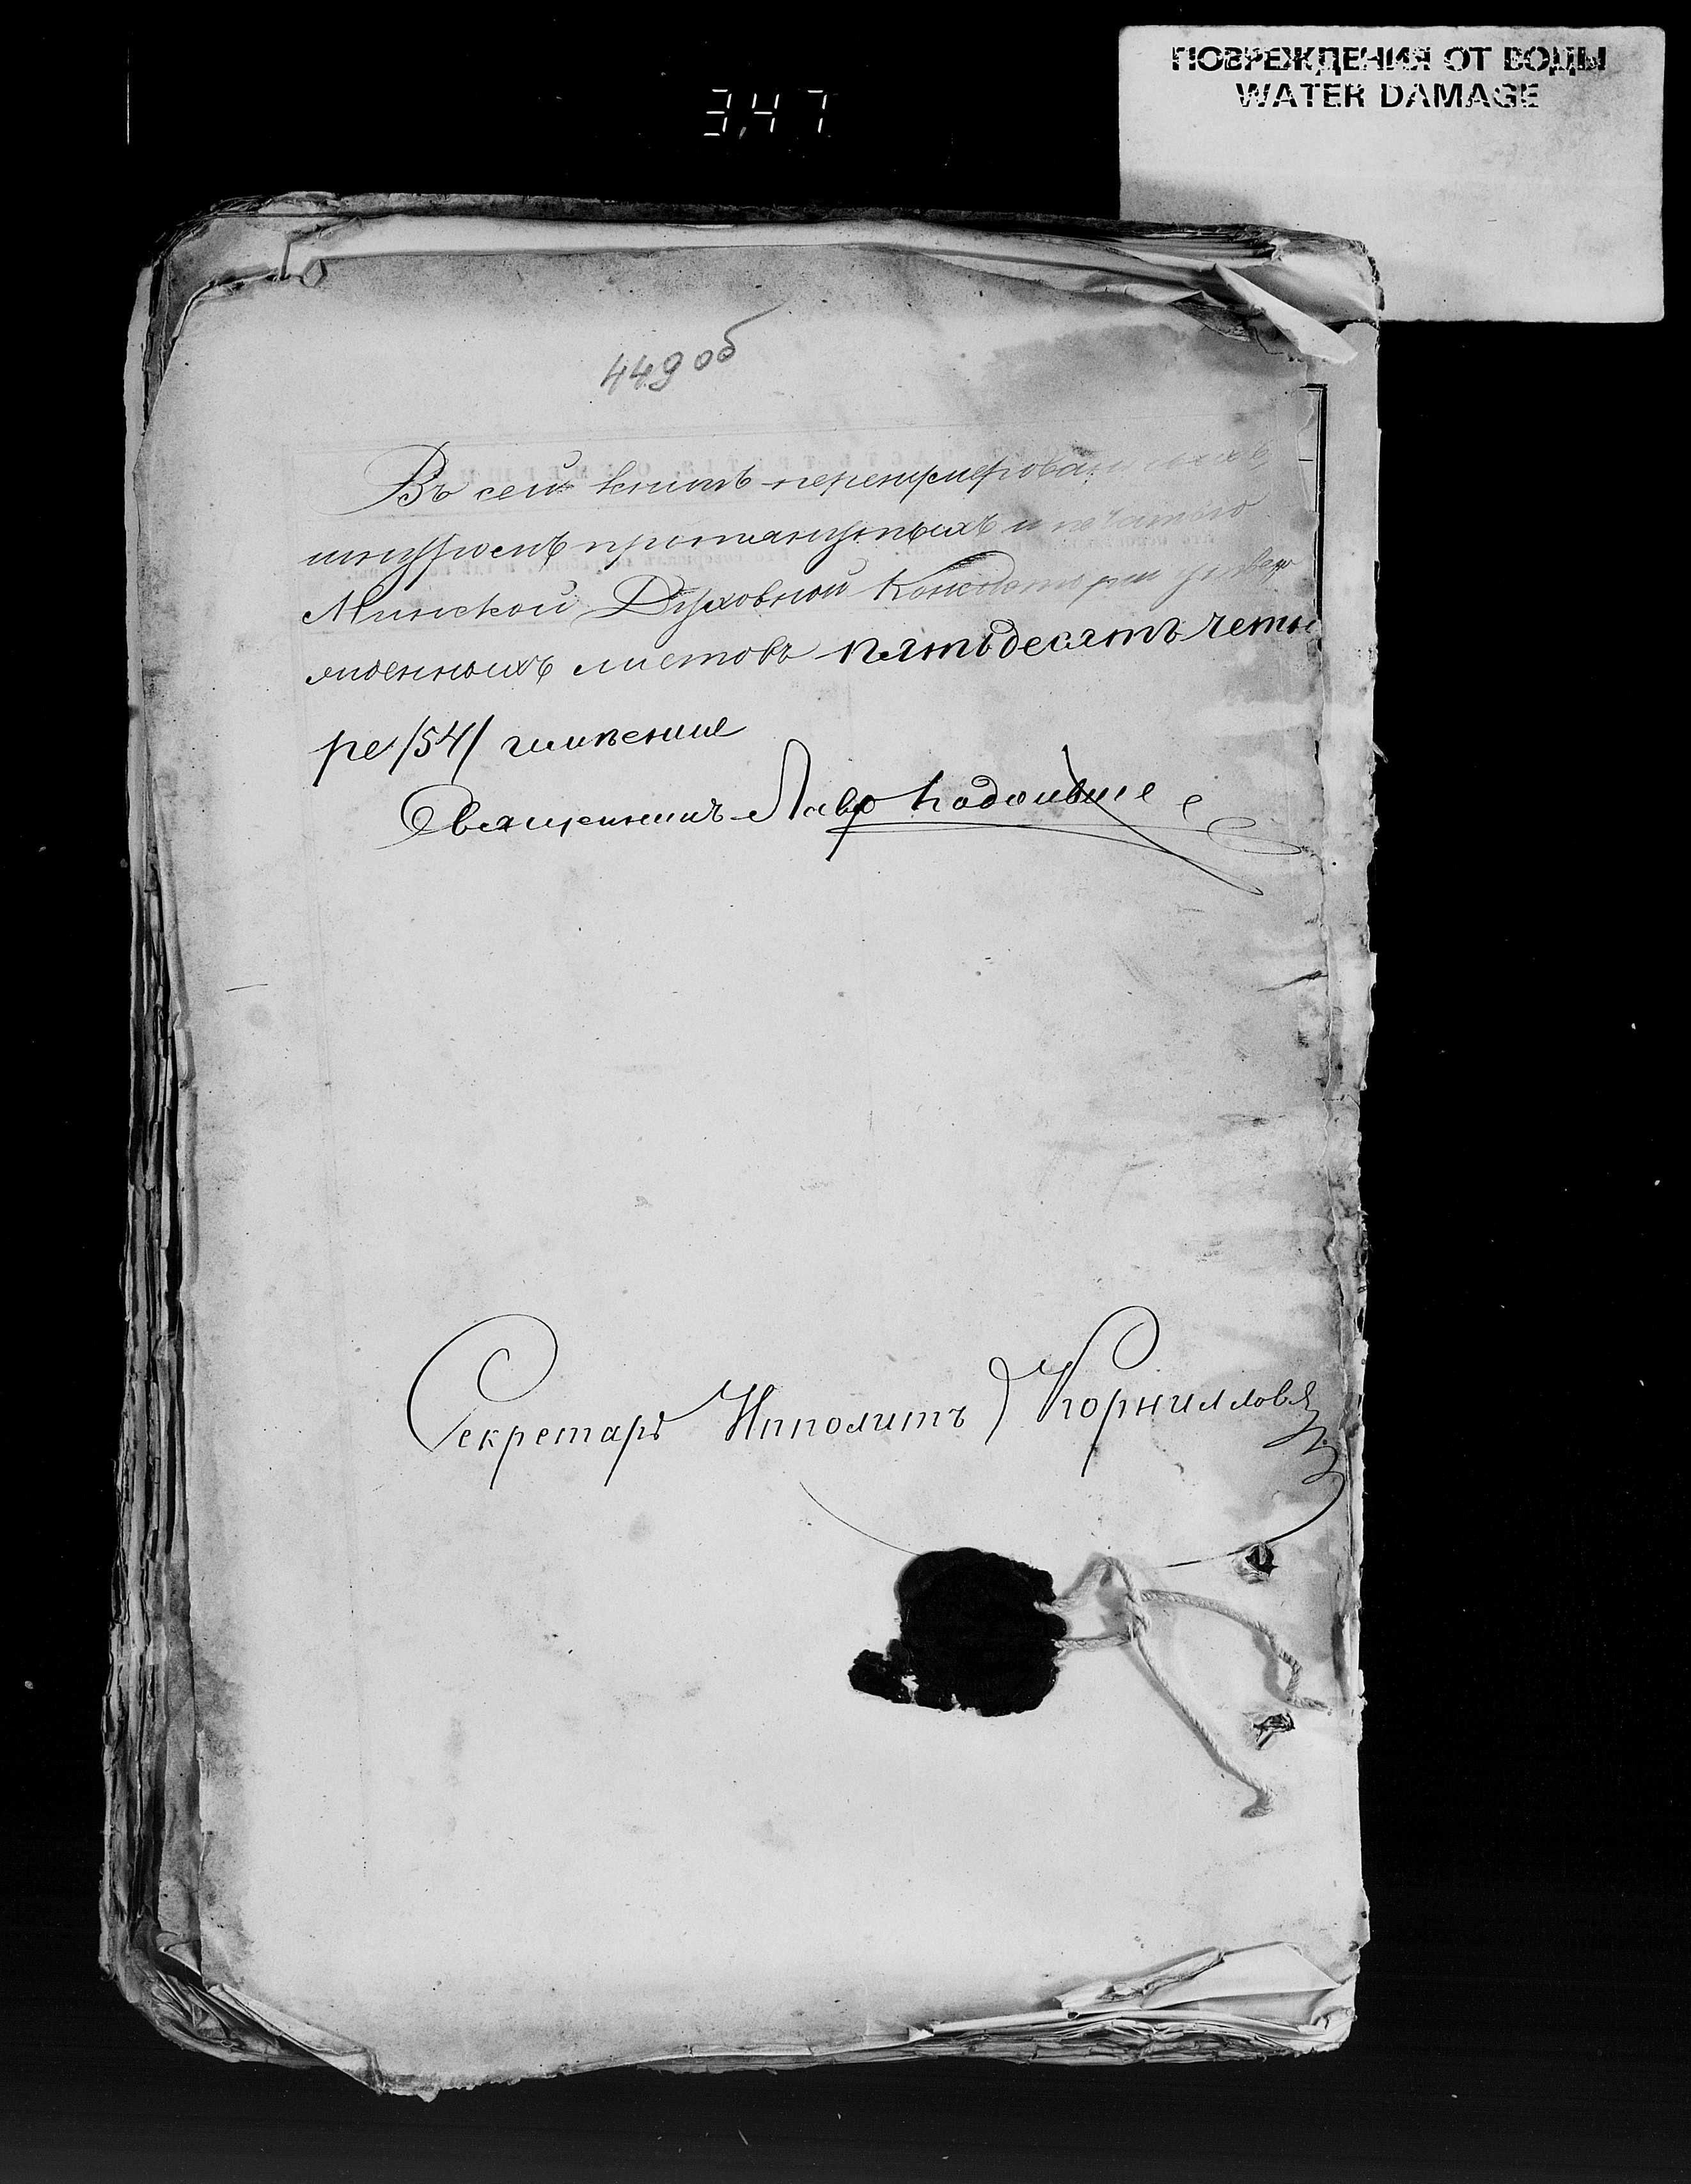 ПОВРЕЖДЕНИЯ ОТ ВОДЫ
WATER DAMAGE
3,47
449 об
Въ сей книгѣ перенумерованныхъ,
шнуромъ протянутыхъ и печатью
Минской Духовной Консисторіи утвер
жденныхъ листовъ пятьдесятъ четы
ре /54/
Священникъ
Секретарь Ипполитъ Корниловъ